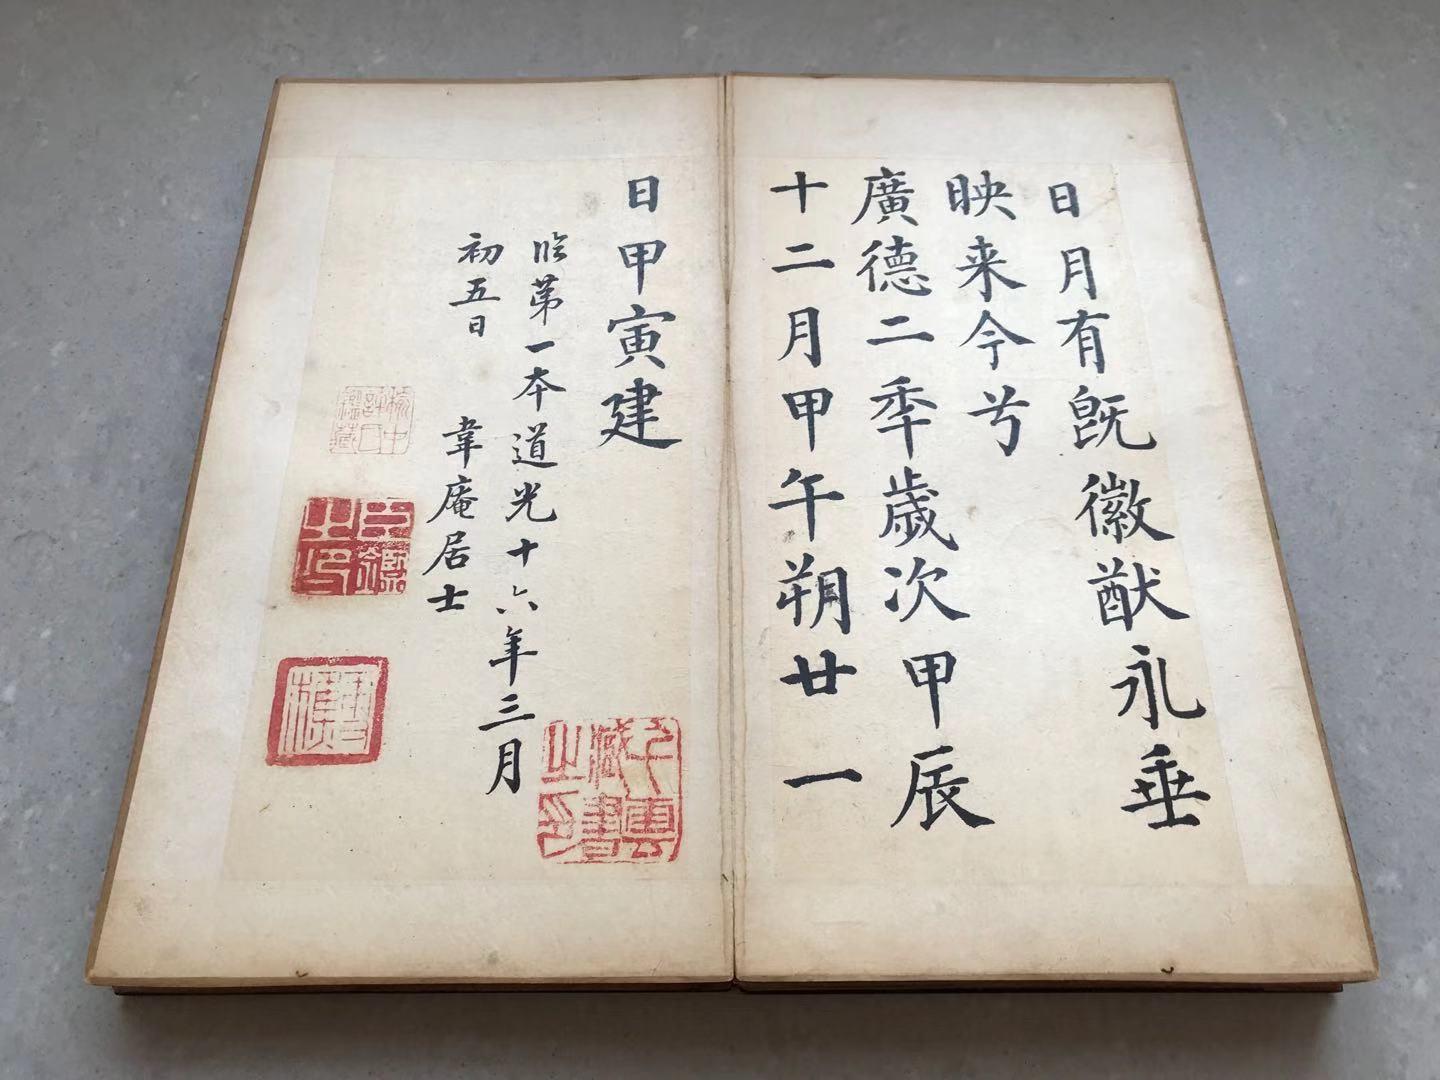 日月有既徽猷永垂
映来今兮
廣德二秊歲次甲辰
十二月甲午朔廿一
日甲寅建
臨第一本道光十六年三月
初五日 葦庵居士
藏書之印